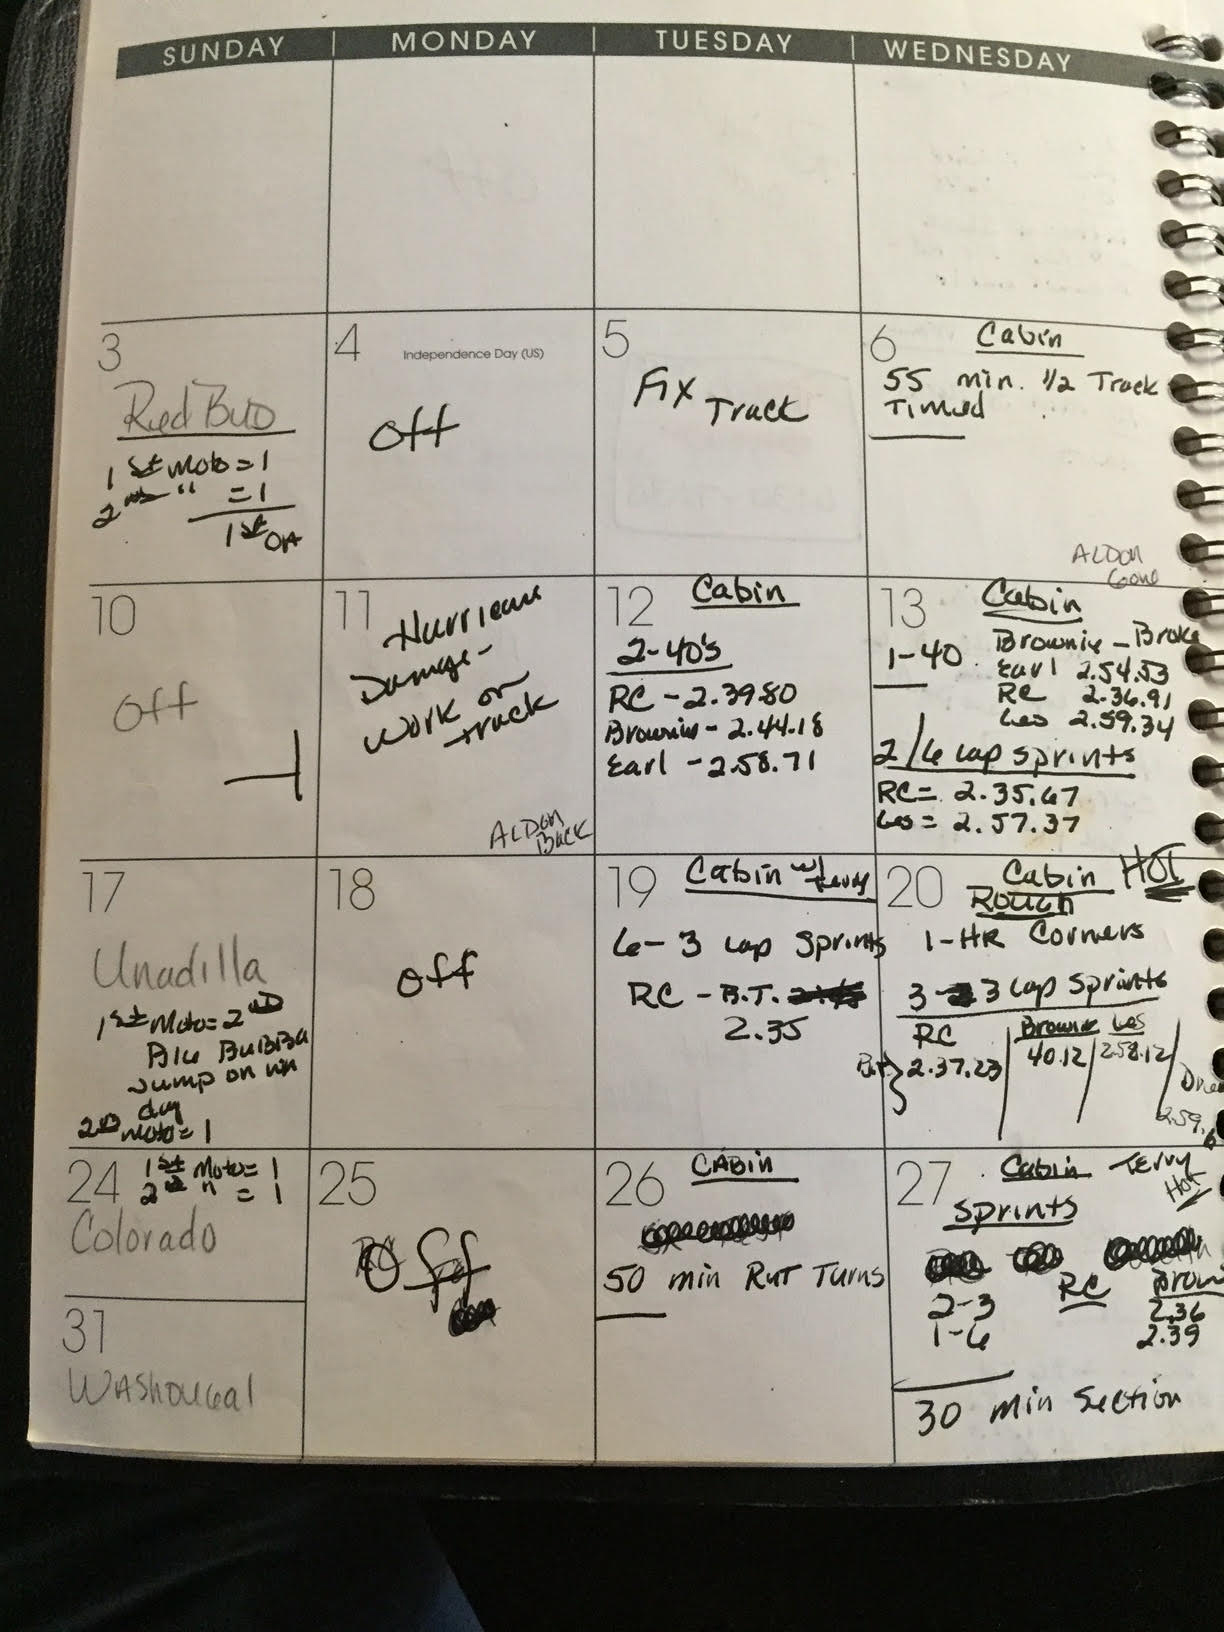 SUNDAY | MONDAY | TUESDAY | WEDNESDAY
3
Red Bud
1st Moto = 1
2nd " = 1
1st OA
4
Independence Day (US)
Off
5
Fix Track
6
Cabin
55 min. 1/2 Track
Timed
ALDon
Gone
10
Off
11
Hurricane
Damage-
Work on
track
ALDon
Back
12
Cabin
2-40's
RC - 2.39.80
Brownie - 2.44.18
Earl - 2.58.71
13
Cabin
1-40
Brownie - Broke
Earl 2.54.53
RC 2.36.91
Les 2.59.34
2/6 lap sprints
RC = 2.35.67
Les = 2.57.37
17
Unadilla
1st Moto = 2nd
Blu BuBBa
Jump on
day
2nd Moto = 1
18
Off
19
Cabin w/ Terry
6- 3 lap Sprints
RC - B.T.
2.35
20
Cabin HOT
Rough
1-HR Corners
3 3 lap Sprints
RC
2.37.23
Brownie
40.12
Les
2.58.12
2.59.
24
1st Moto = 1
2nd " = 1
Colorado
31
WAShougal
25
Off
26
CABin
50 min Rut Turns
27
Cabin Terry
Hot
Sprints
RC
2-3
1-6
2.36
2.39
30 min Section